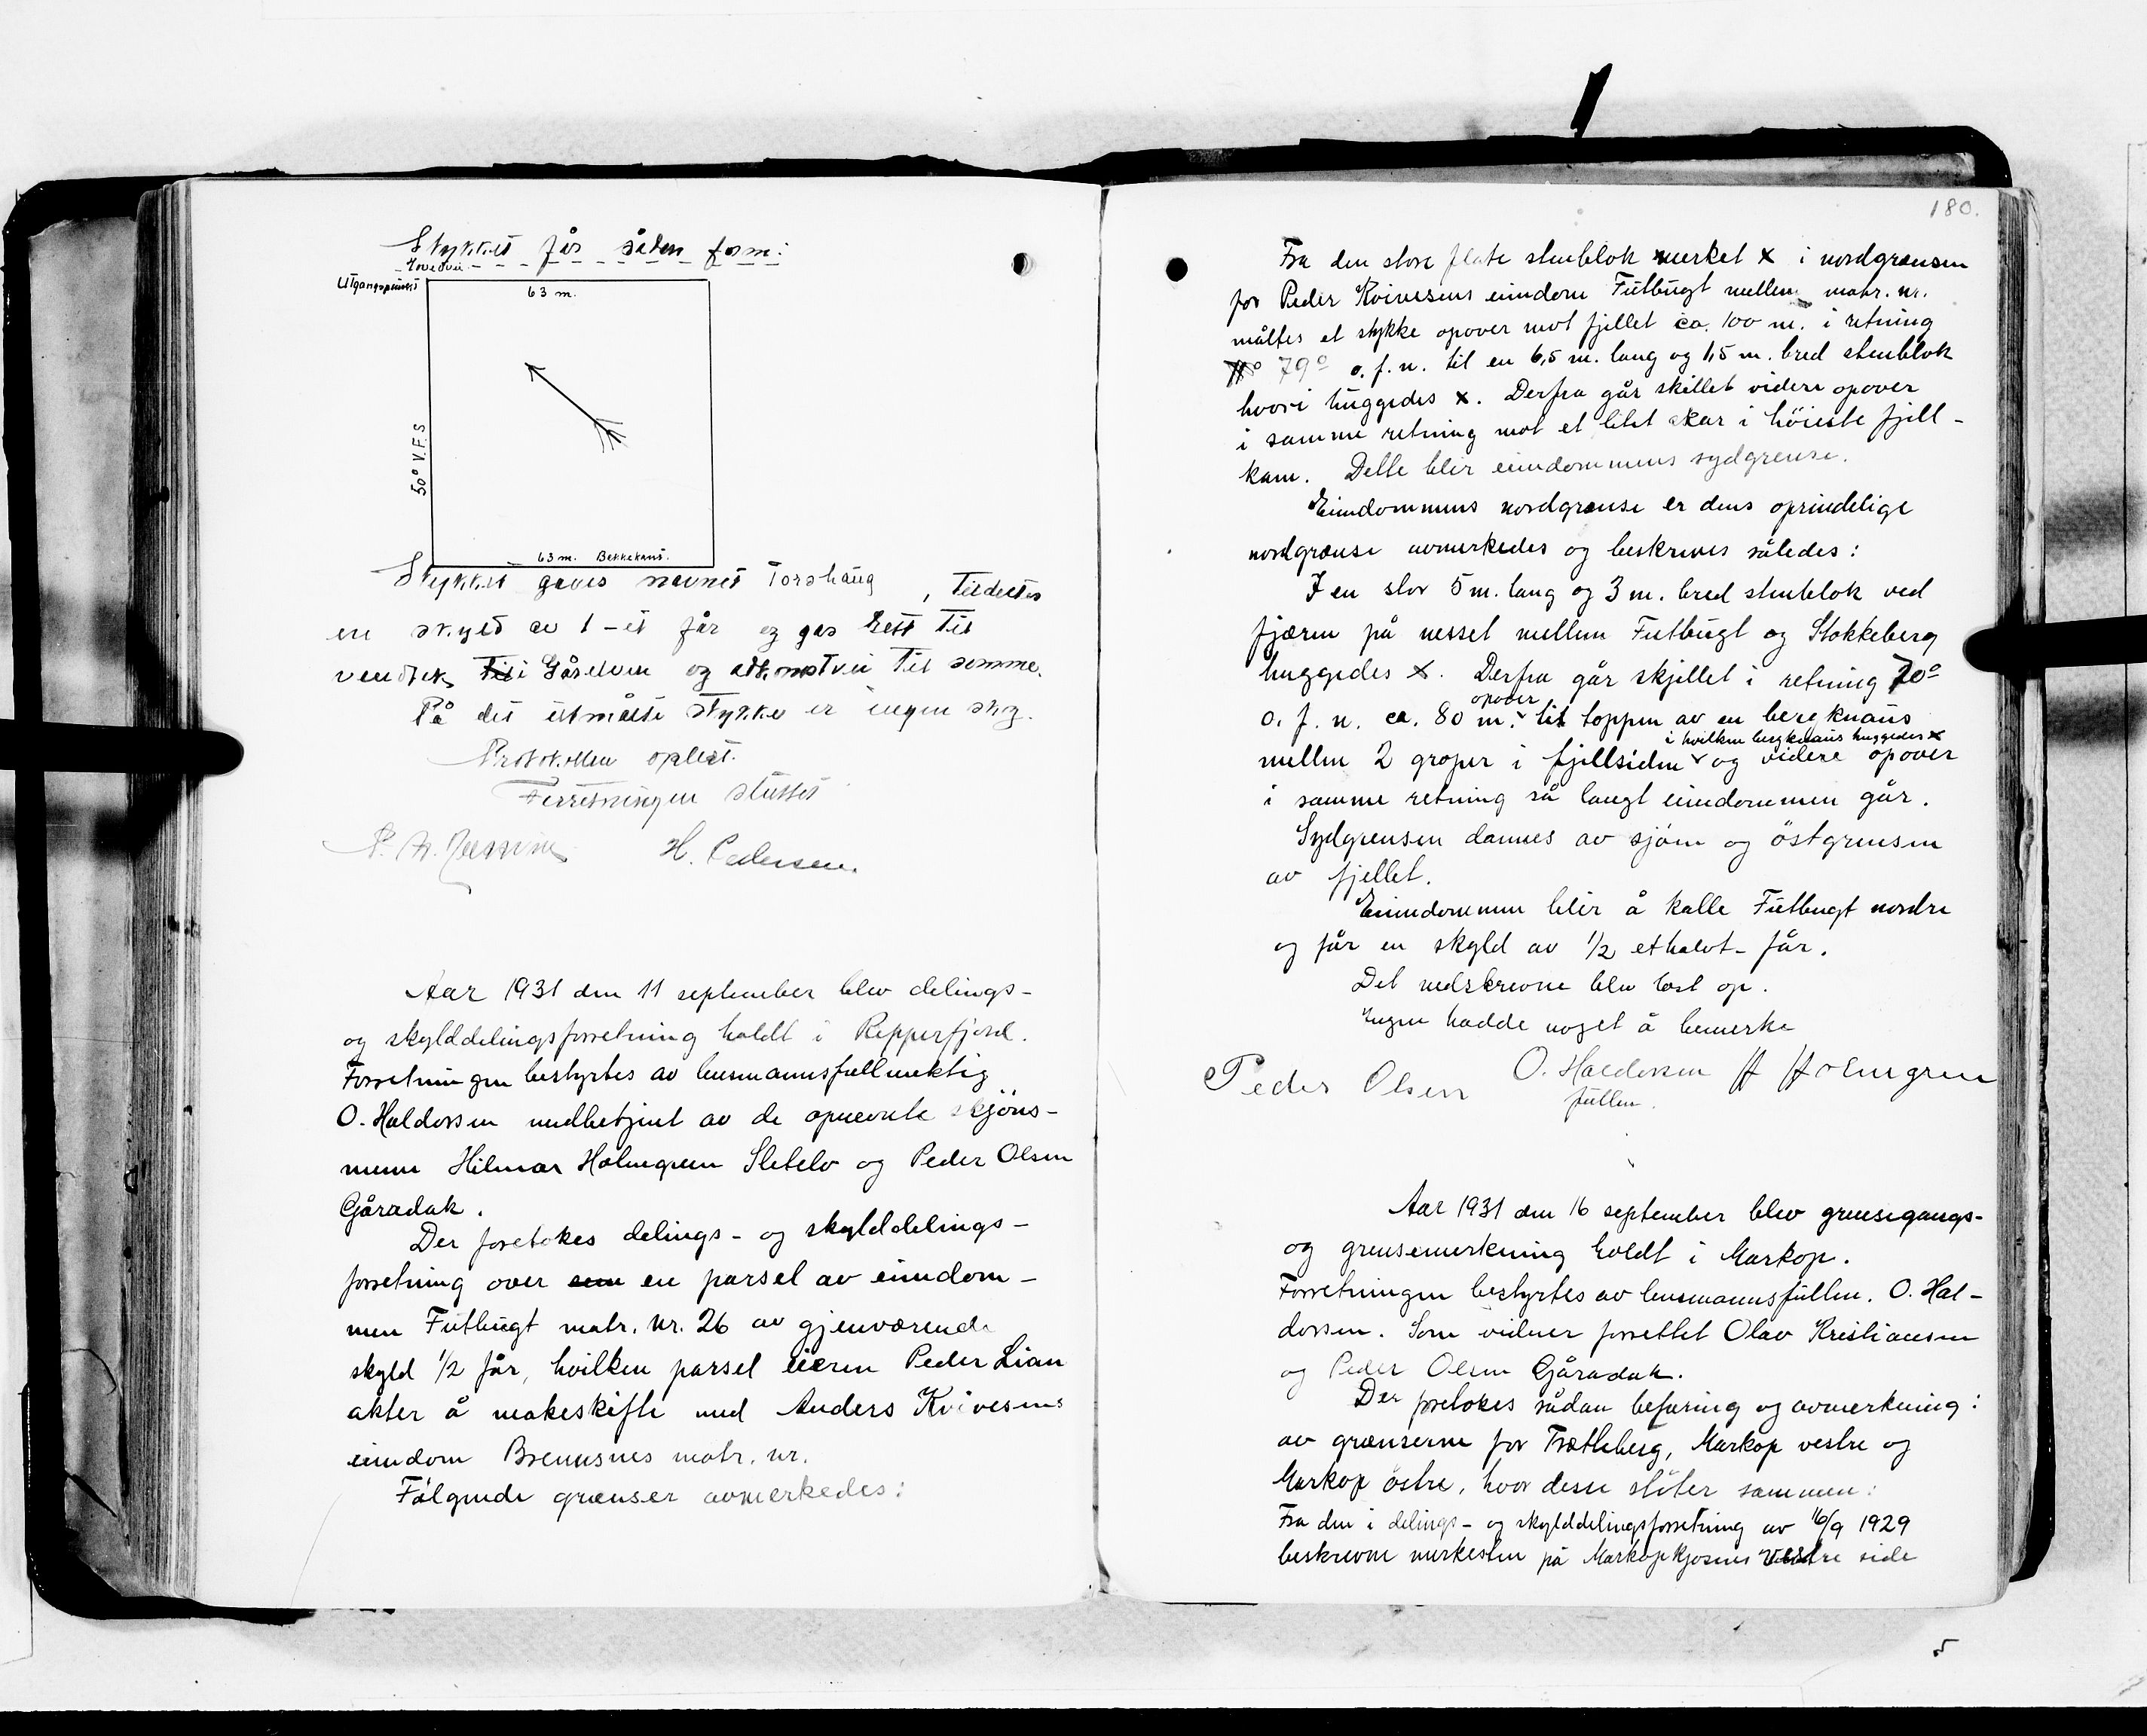 Stykket får såden form:
Hovedvei
Utgangspunkt
63 m.
50° V.F.S
63 m. Bekkekant.
Stykket gaves navnet Torshaug, tildeltes
en skyld av 1-et får og gas rett til
vendtek Til i Gårelven og adkomstvei til samme.
På det utmålte stykke er ingen skog.
Protokollen oplest.
Forretningen sluttet
H. Pedersen.
Aar 1931 den 11 september blev delings-
og skylddelingsforretning holdt i Repperfjord.
Forretningen bestyrtes av lensmannsfullmektig
O. Haldorsen medbetjent av de opnevnte skjöns-
menn Hilmar Holmgren Sletelv og Peder Olsen
Gåradak.
Der foretokes delings- og skylddelings-
forretning over som en parsel av eiendom-
men Futbugt matr. nr. 26 av gjenværende
skyld 1/2 får, hvilken parsel eieren Peder Lian
akter å makeskifte med Anders Kvivesens
eiendom Brennsnes matr. nr.
Fölgende grænser avmerkedes:
180.
Fra den store flate stenblok merket x i nordgrænsen
for Peder Kvivesens eiendom Futbugt mellem matr. nr.
måltes et stykke opover mot fjellet ca. 100 m. i retning
79° o. f. n. til en 6,5 m. lang og 1,5 m. bred stenblok
hvori huggedes x. Derfra går skillet videre opover
i samme retning mot et litet skar i höieste fjell-
kam. Dette blir eiendommens sydgrense.
Eiendommens nordgrænse er dens oprindelige
nordgrænse avmerkedes og beskrives således:
I en stor 5 m. lang og 3 m. bred stenblok ved
fjæren på nesset mellem Futbugt og Stokkeberg
huggedes x. Derfra går skjellet i retning 70°
opover
o. f. n. ca. 80 m. til toppen av en bergknaus
i hvilken bergknaus huggedes x
mellem 2 groper i fjellsiden og videre opover
i samme retning så langt eiendommen går.
Sydgrensen dannes av sjöen og östgrensen
av fjellet.
Eiendommen blir å kalle Futbugt nordre
og får en skyld av 1/2 et halvt- får.
Det nedskrevne blev læst op.
Ingen hadde noget å bemerke
Peder Olsen O. Haldorsen H Holmgren
fullm.
Aar 1931 den 16 september blev grensegangs-
og grensemerkning holdt i Markop.
Forretningen bestyrtes av lensmannsfullm. O. Hal-
dorsen. Som vidner forrettet Olav Kristiansen
og Peder Olsen Gåradak.
Der foretokes sådan befaring og avmerkning:
av grænserne for Trætteberg, Markop vestre og
Markop östre, hvor desse stöter sammen:
Fra den i delings- og skylddelingsforretning av 16/9 1929
beskrevne merkesten på Markopkjosens vestre side